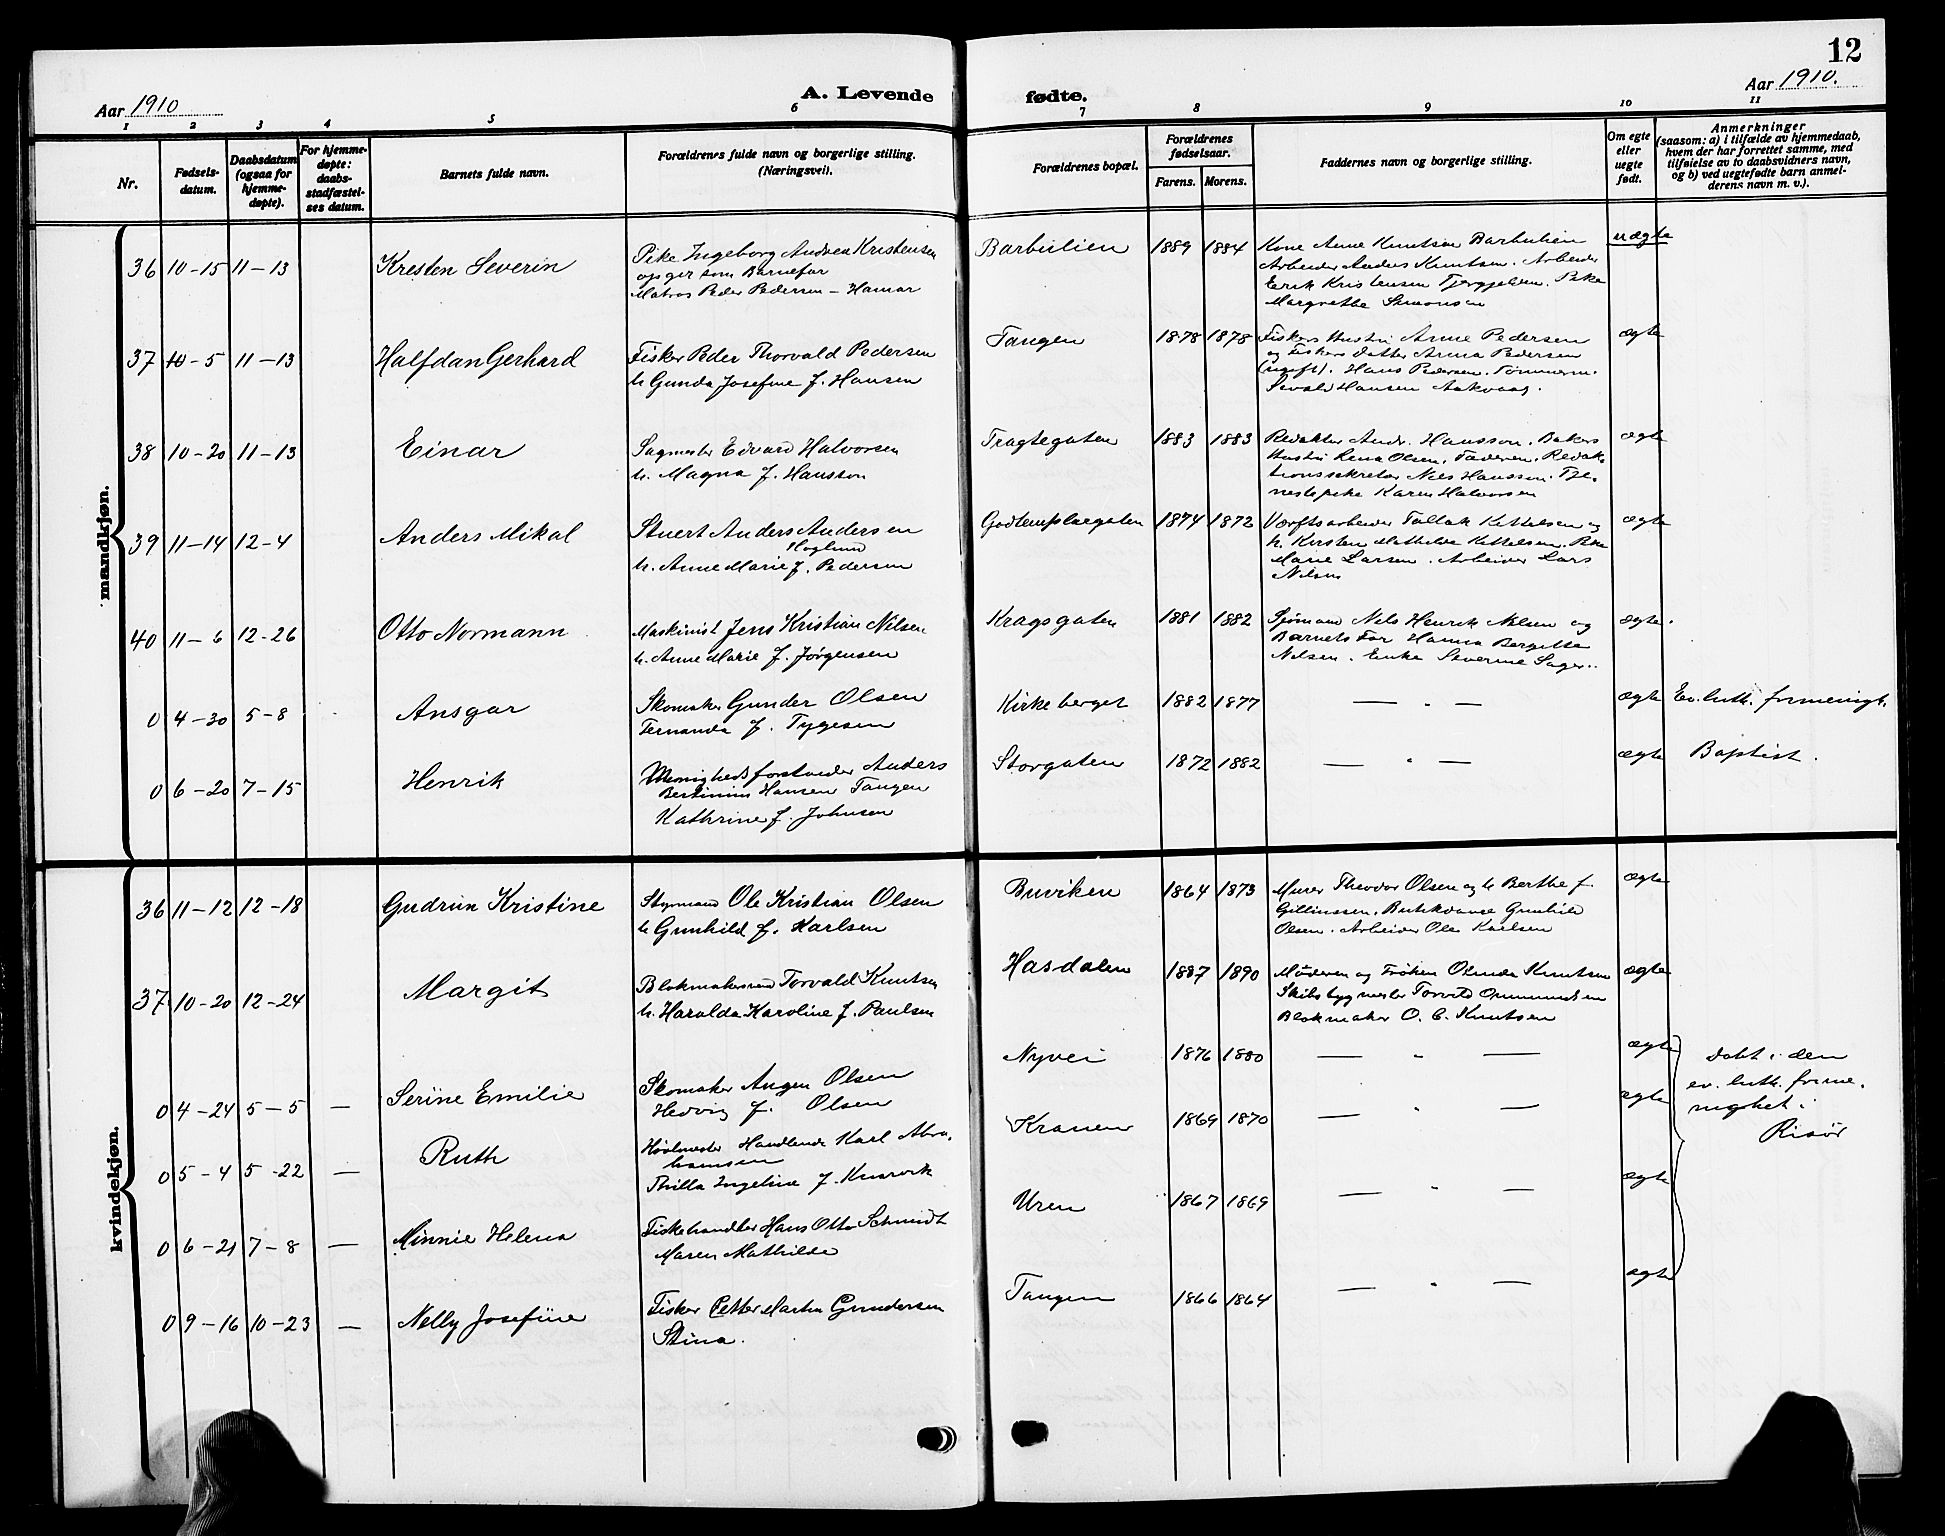 12
Aar 1910
A. Levende fødte.
Aar 1910.
1 2 3 4 5 6 7 8 9 10 11
Nr.
Fødsels-
datum.
Daabsdatum
(ogsaa for
hjemme-
døpte).
For hjemme-
døpte:
daabs-
stadfæstel-
ses datum.
Barnets fulde navn.
Forældrenes fulde navn og borgerlige stilling.
(Næringsvei).
Forældrenes bopæl.
Forældrenes
fødselsaar.
Farens. Morens.
Faddernes navn og borgerlige stilling.
Om egte
eller
uegte
født.
Anmerkninger
(saasom: a) i tilfælde av hjemmedaab,
hvem der har forrettet samme, med
tilføielse av to daabsvidners navn,
og b) ved uegtefødte barn anmel-
derens navn m. v.).
mandkjøn.
36 10-15 11-13 Kresten Severin
Pike Ingeborg Andrea Kristensen
opgir som Barnefar
Matros Peder Pedersen - Hamar
Barbulien 1889 1884
Kone Anne Knutsen Barbulien
Arbeider Anders Knutsen. Arbeider
Erik Kristensen. Pike
Margrethe Simonsen
uægte
37 10-5 11-13 Halfdan Gerhard
Fisker Peder Thorvald Pedersen
h. Gunda Josefine f. Hansen
Tangen 1878 1878
Fiskers Hustru Anne Pedersen
og Fiskers Datter Anna Pedersen
(ugift). Hans Pedersen. Tømmerm.
Sevald Hansen Aakvaag.
ægte
38 10-20 11-13 Einar
Sagmester Edvard Halvorsen
h. Magna f. Hansson
Tragtegaten 1883 1883
Redaktør Andr. Hansson. Bakers
Hustru Lena Olsen. Faderen. Redak-
tionssekretær Nils Hansson. Tje-
nestepike Karen Halvorsen
ægte
39 11-14 12-4 Anders Mikal
Stuert Anders Andersen
Hoglund
h. Anne Marie f. Pedersen
Godtemplargaten 1874 1872
Værftsarbeider Tallak Kettelsen og
h. Kirsten Mathilde Kettelsen. Pike
Marie Larsen. Arbeider Lars
Nilsen
ægte
40 11-6 12-26 Otto Normann
Maskinist Jens Kristian Nilsen
h. Anne Marie f. Jørgensen
Kragsgaten 1881 1882
Sjømand Nils Henrik Nilsen og
Barnets Far Hanna Bergitte
Nilsen. Enke Severine
ægte.
0 4-30 5-8 Ansgar
Skomaker Gunder Olsen
Fernanda f. Tygesen
Kirkeberget 1882 1877 — " —
ægte Ev. luth. frimenigt.
0 6-20 7-15 Henrik
Menighedsforstander Anders
Bertinius Hansen Tangen
Kathrine f. Johnsen
Storgaten 1872 1882 — " —
ægte Baptist.
kvindekjøn.
36 11-12 12-18 Gudrun Kristine
Styrmand Ole Kristian Olsen
h. Gunhild f. Karlsen
Buviken 1864 1873
Murer Theodor Olsen og h. Berthe f.
Olsen. Arbeider Ole Karlsen
ægte
37 10-20 12-24 Margit
Blokmakersvend Torvald Knutsen
h. Haralda Karoline f. Paulsen
Hasdalen 1887 1890
Moderen og Frøken Olinda Knutsen
Skibsbygmester Torvild
Blokmaker O. C. Knutsen
ægte
0 4-24 5-5 — Serine Emilie
Skomaker Angen Olsen
Hedvig f. Olsen
Nyvei 1876 1880 — " —
ægte
0 5-4 5-22 — Ruth
Handlende Karl Abra-
hamsen
Ingeline f.
Kranen 1869 1870 — " —
ægte
0 6-21 7-8 — Minnie Helena
Fiskehandler Hans Otto Schmidt
Maren Mathilde
Uren 1867 1869 — " —
ægte
0 9-16 10-23 — Nelly Josefine
Fisker Petter Martin Gundersen
Stina.
Tangen 1866 1864 — " —
ægte
Døbt i den
ev. luth. frime-
nighet i
Risør